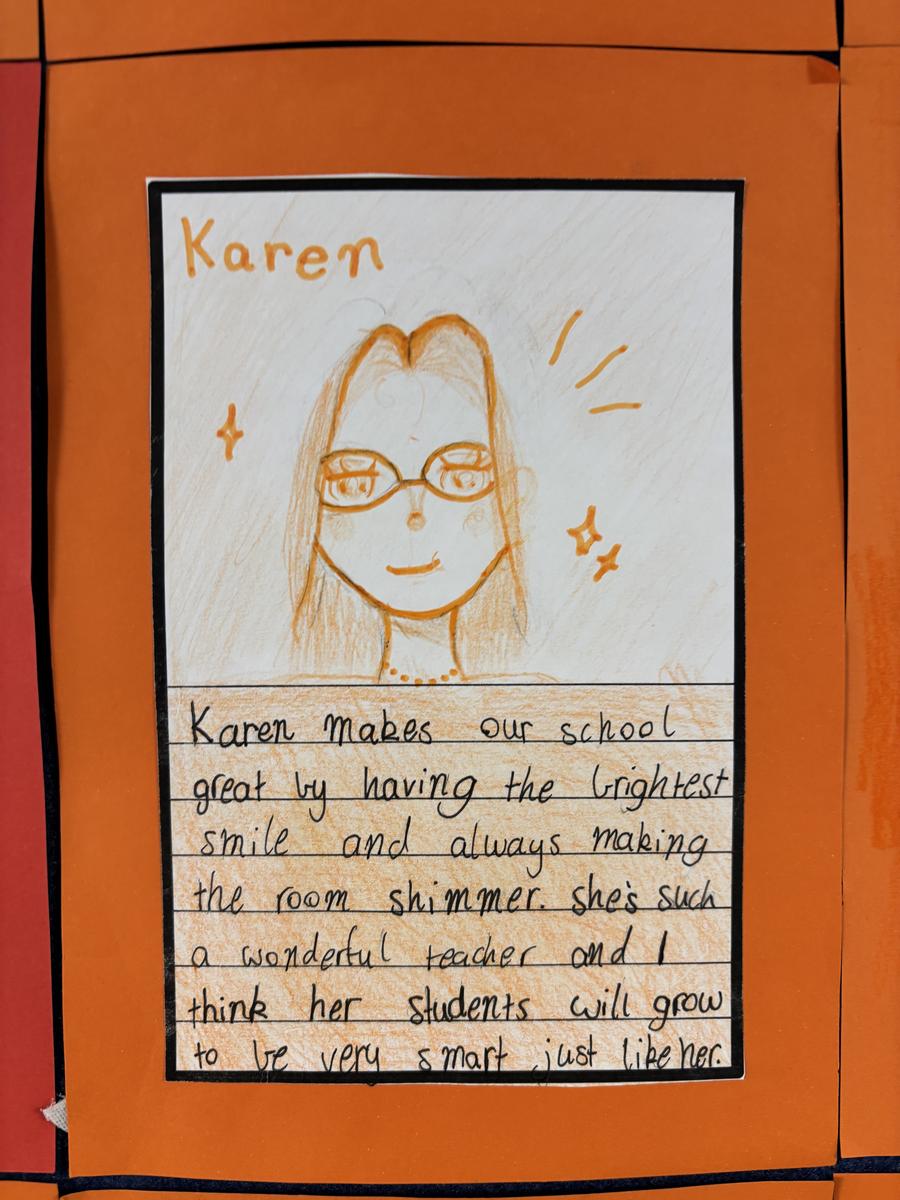 Karen
Karen makes our school
great by having the brightest
smile and always making
the room shimmer. she's such
a wonderful teacher and I
think her students will grow
to be very smart just like her.